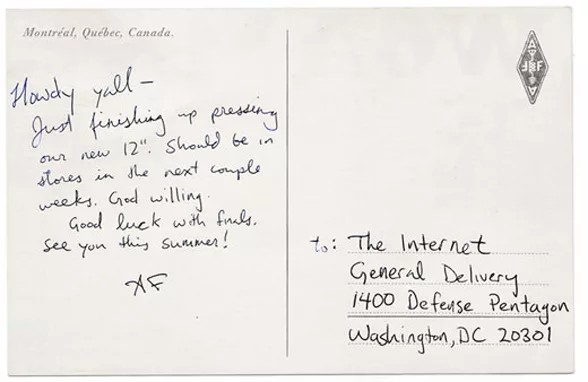 Montréal, Québec, Canada.
Howdy yall —
Just finishing up pressing
our new 12". Should be in
stores in the next couple
weeks. God willing.
Good luck with finals.
See you this summer!
AF
to: The Internet
General Delivery
1400 Defense Pentagon
Washington, DC 20301